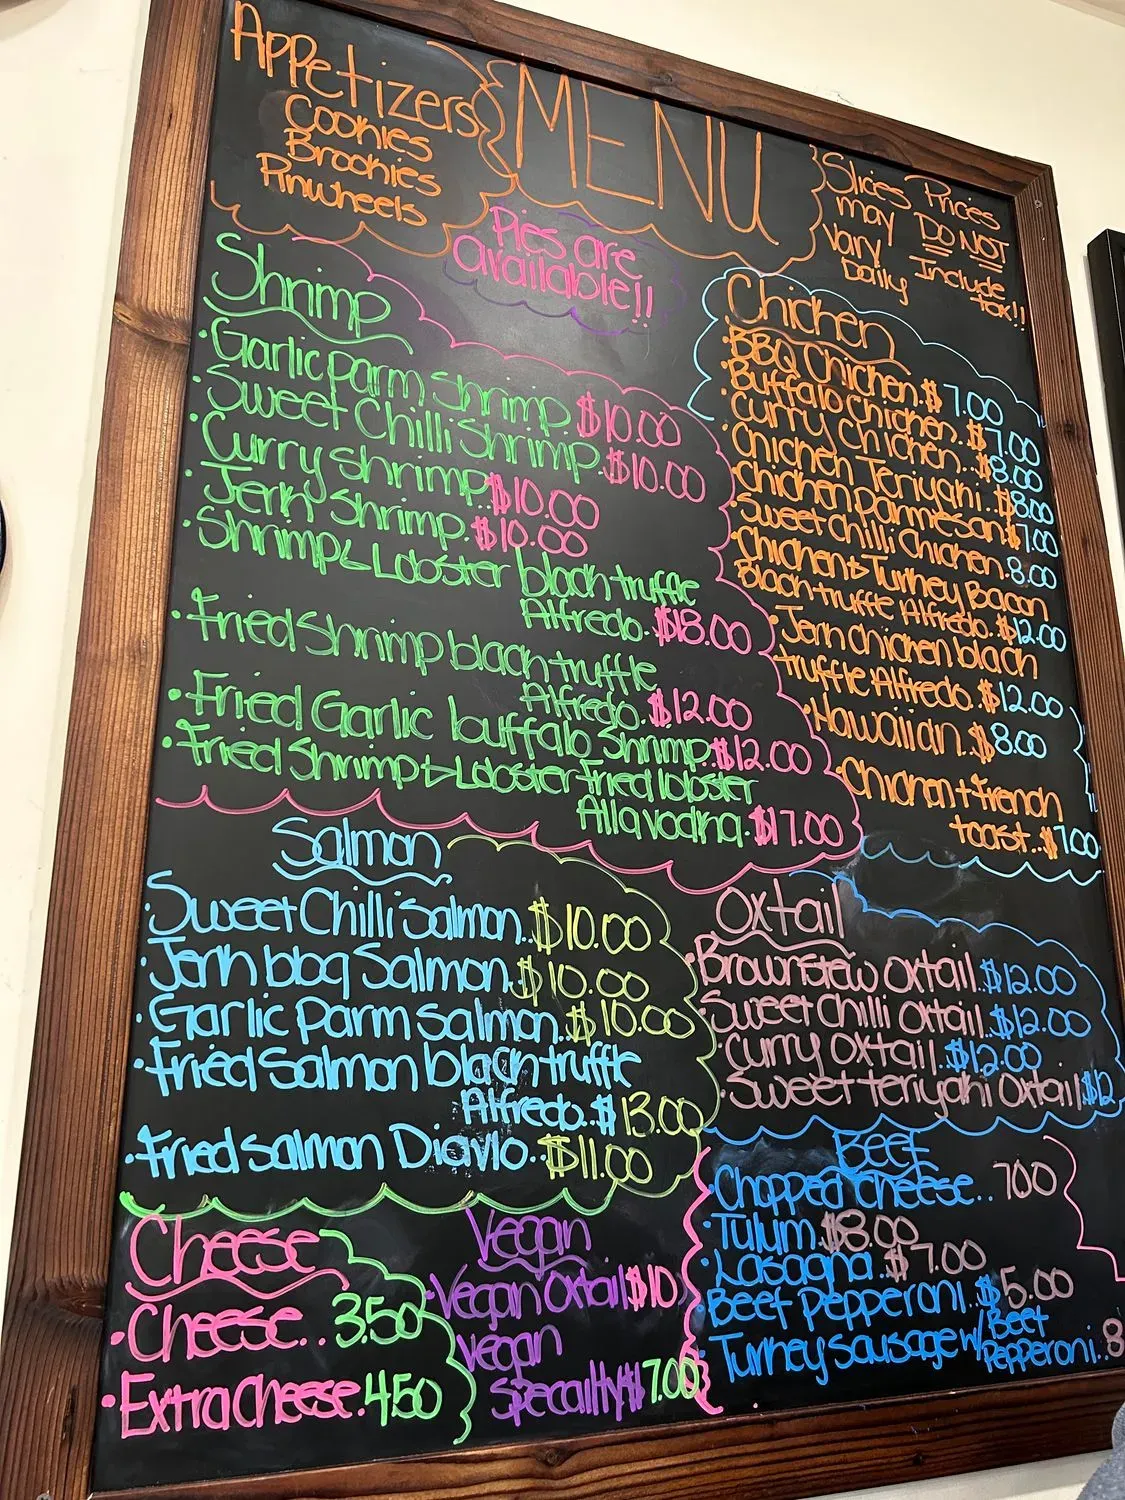 Appetizers
Cookies
Brookies
Pinwheels
MENU
Slices may vary Daily
Prices DO NOT Include tax!!
Pies are
available!!
Shrimp
• Garlic parm shrimp $10.00
• Sweet Chilli Shrimp. $10.00
• Curry shrimp. $10.00
• Jerk Shrimp. $10.00
• Shrimp & Lobster black truffle
Alfredo. $18.00
• Fried Shrimp black truffle
Alfredo. $12.00
• Fried Garlic buffalo Shrimp. $12.00
• Fried Shrimp & Lobster Fried lobster
Alla vodka. $17.00
Chicken
• BBQ Chicken. $7.00
• Buffalo chicken. $7.00
• Curry chicken.. $8.00
• Chicken Teriyaki.. $8.00
• Chicken parmesan $7.00
• Sweet Chilli Chicken. 8.00
• Chicken & Turkey Bacon
Black truffle Alfredo. $12.00
• Jerk chicken black
truffle Alfredo. $12.00
• Hawaiian.. $8.00
• Chicken + french
toast.. $7.00
Salmon
• Sweet Chilli Salmon.. $10.00
• Jerk bbq Salmon. $10.00
• Garlic Parm Salmon.. $10.00
• Fried Salmon black truffle
Alfredo.. $13.00
• Fried Salmon Diavlo.. $11.00
Oxtail
• Brownstew oxtail. $12.00
• Sweet Chilli oxtail.. $12.00
• Curry oxtail.. $12.00
• Sweet teriyaki Oxtail $12
Cheese
• Cheese.. 3.50
• Extra Cheese. 4.50
Vegan
• Vegan Oxtail $10
• Vegan
Specailty $7.00
Beef
• Chopped Cheese.. 7.00
• Tulum $8.00
• Lasagna.. $7.00
• Beef Pepperoni.. $5.00
• Turkey sausage w/ Beef
Pepperoni.. 8